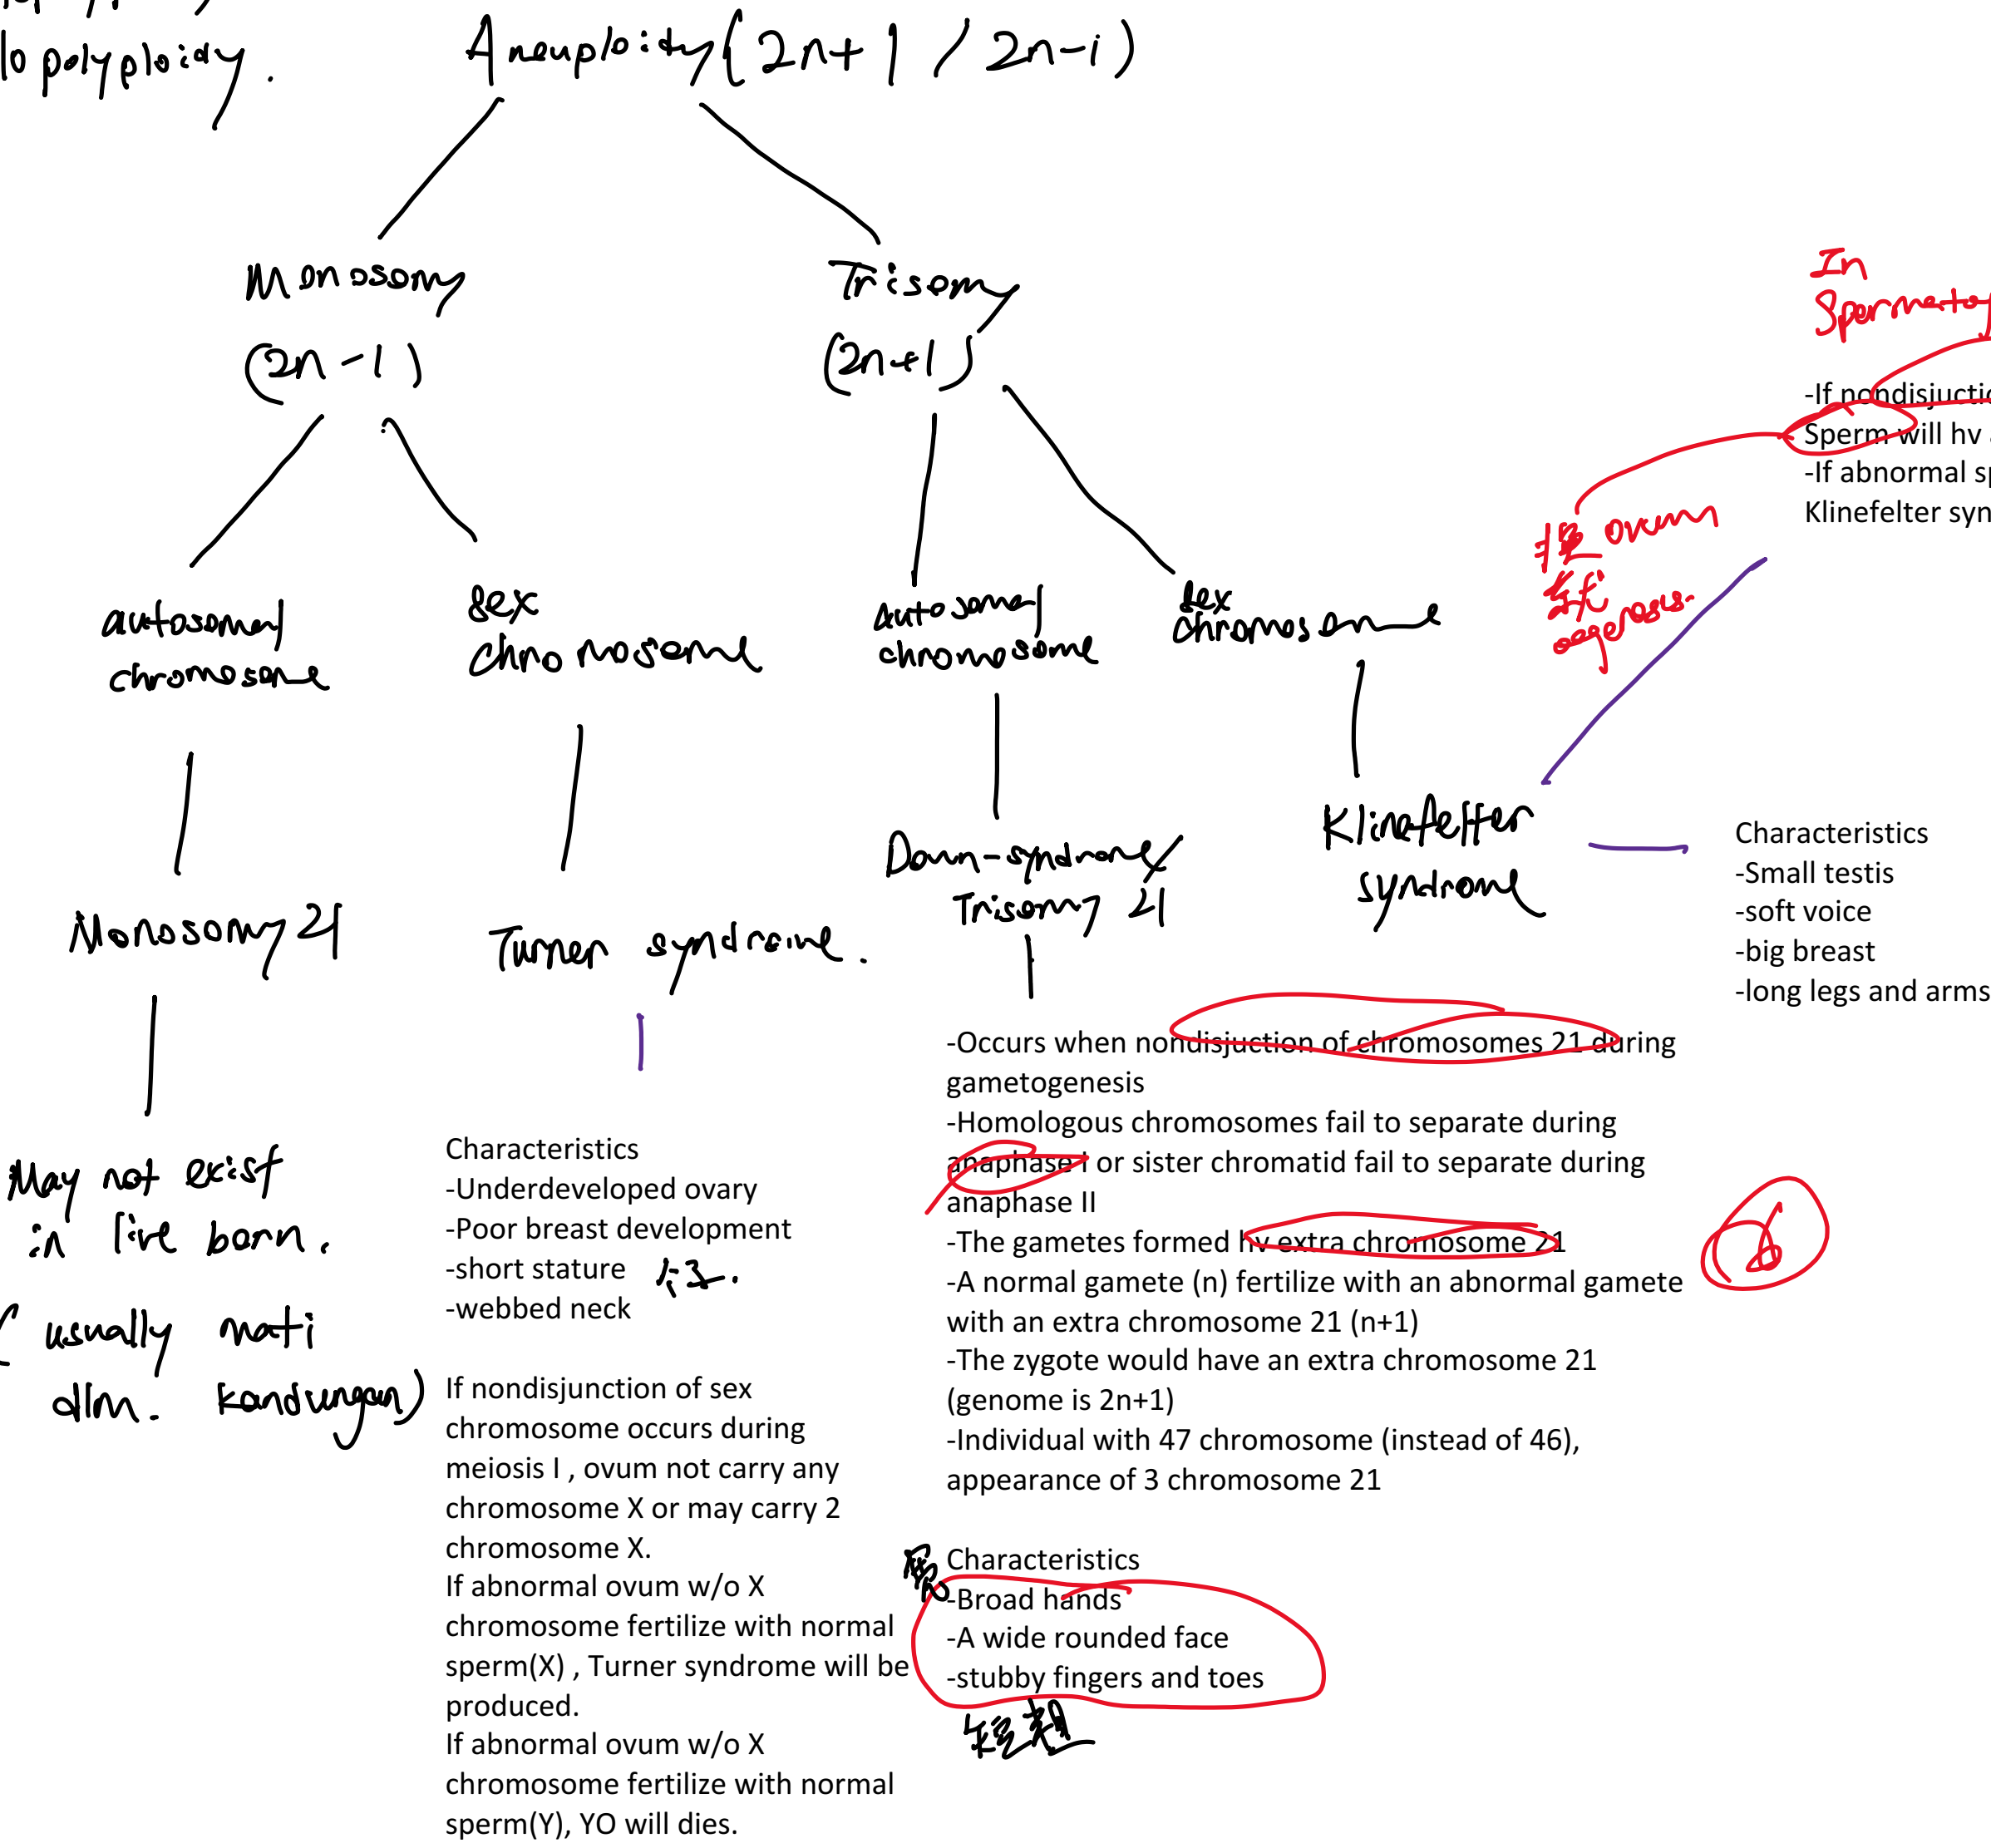 lo polyploidy.
Aneuploidy (2n+1 / 2n-1)
Monosomy
(2n-1)
Trisomy
(2n+1)
In
-If
Sperm will hv
-If abnormal
Klinefelter
ovum
autosomal
chromosome
sex
chromosome
autosomal
chromosome
sex
chromosome
Monosomy 21
Turner syndrome.
Down-syndrome/
Trisomy 21
Klinefelter
syndrome
Characteristics
-Small testis
-soft voice
-big breast
-long legs and arms
May not exist
in live born.
( usually mati
dlm. kandungan)
Characteristics
-Underdeveloped ovary
-Poor breast development
-short stature
-webbed neck
If nondisjunction of sex
chromosome occurs during
meiosis I , ovum not carry any
chromosome X or may carry 2
chromosome X.
If abnormal ovum w/o X
chromosome fertilize with normal
sperm(X) , Turner syndrome will be
produced.
If abnormal ovum w/o X
chromosome fertilize with normal
sperm(Y), YO will dies.
-Occurs when nondisjuction of chromosomes 21 during
gametogenesis
-Homologous chromosomes fail to separate during
anaphase I or sister chromatid fail to separate during
anaphase II
-The gametes formed hv extra chromosome 21
-A normal gamete (n) fertilize with an abnormal gamete
with an extra chromosome 21 (n+1)
-The zygote would have an extra chromosome 21
(genome is 2n+1)
-Individual with 47 chromosome (instead of 46),
appearance of 3 chromosome 21
6
Characteristics
-Broad hands
-A wide rounded face
-stubby fingers and toes